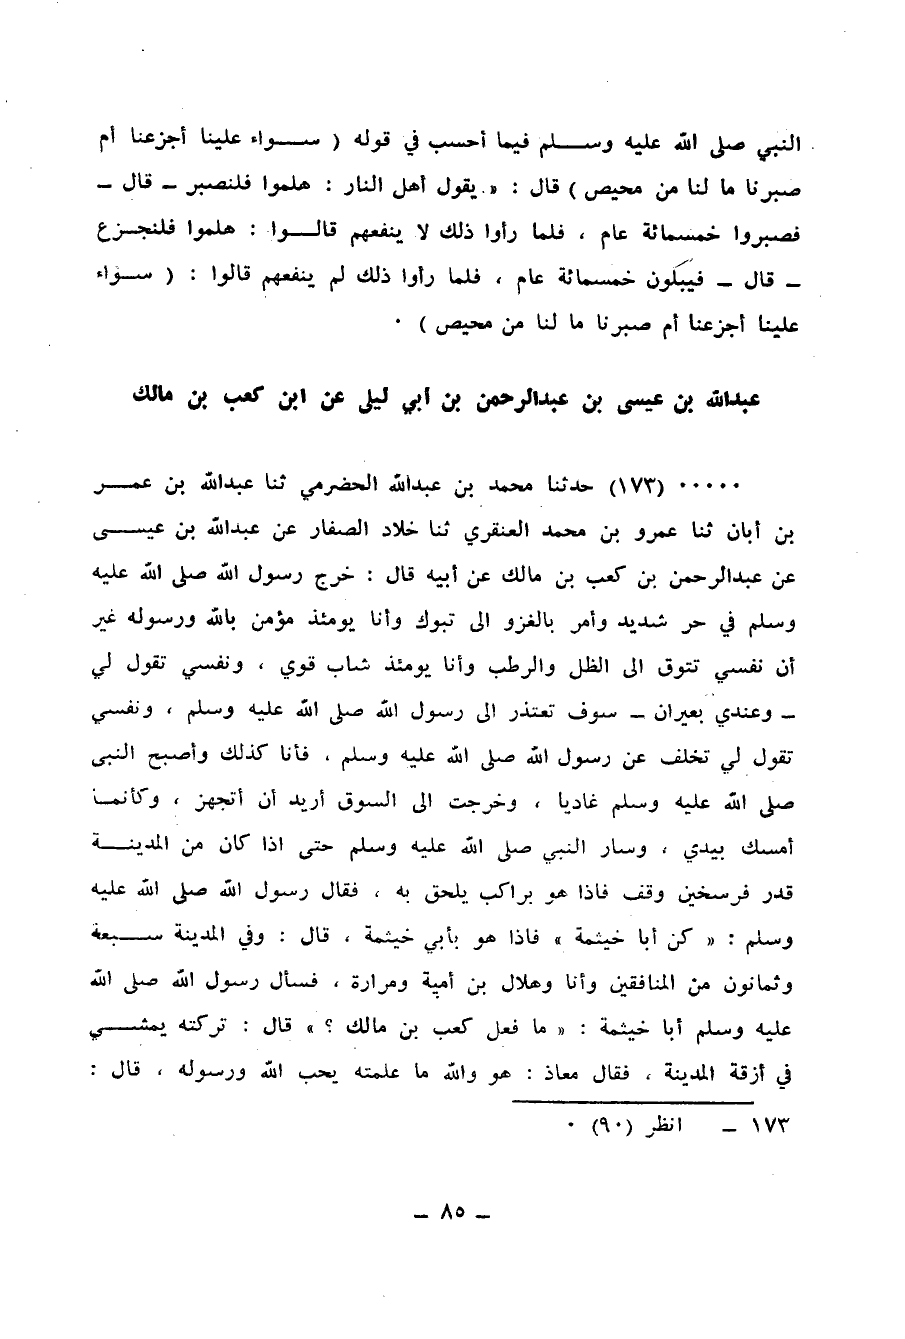 النبي صلى الله عليه وســـلم فيما أحسب في قوله ( ســـواء علينا أجزعنا أم
صبرنا ما لنا من محيص ) قال : « يقول أهل النار : هلموا فلنصبر ــ قال ــ
فصبروا خمسمائة عام ، فلما رأوا ذلك لا ينفعهم قالـــوا : هلموا فلنجـــزع
ــ قال ــ فيبكون خمسمائة عام ، فلما رأوا ذلك لم ينفعهم قالوا : ( ســـواء
علينا أجزعنا أم صبرنا ما لنا من محيص ) ٠
عبدالله بن عيسى بن عبدالرحمن بن أبي ليلى عن ابن كعب بن مالك
٠٠٠٠٠ (١٧٣) حدثنا محمد بن عبدالله الحضرمي ثنا عبدالله بن عمـــر
بن أبان ثنا عمرو بن محمد العنقري ثنا خلاد الصفار عن عبدالله بن عيـــسى
عن عبدالرحمن بن كعب بن مالك عن أبيه قال : خرج رسول الله صلى الله عليه
وسلم في حر شديد وأمر بالغزو الى تبوك وأنا يومئذ مؤمن بالله ورسوله غير
أن نفسي تتوق الى الظل والرطب وأنا يومئذ شاب قوي ، ونفسي تقول لي
ــ وعندي بعيران ــ سوف تعتذر الى رسول الله صلى الله عليه وسلم ، ونفسي
تقول لي تخلف عن رسول الله صلى الله عليه وسلم ، فأنا كذلك وأصبح النبى
صلى الله عليه وسلم غاديا ، وخرجت الى السوق أريد أن أتجهز ، وكأنمـا
أمسك بيدي ، وسار النبي صلى الله عليه وسلم حتى اذا كان من المدينـــة
قدر فرسخين وقف فاذا هو براكب يلحق به ، فقال رسول الله صلى الله عليه
وسلم : « كن أبا خيثمة » فاذا هو بأبي خيثمة ، قال : وفي المدينة ســـبعة
وثمانون من المنافقين وأنا وهلال بن أمية ومرارة ، فسأل رسول الله صلى الله
عليه وسلم أبا خيثمة : « ما فعل كعب بن مالك ؟ » قال : تركته يمشـــي
في أزقة المدينة ، فقال معاذ : هو والله ما علمته يحب الله ورسوله ، قال :
١٧٣ ــ انظر (٩٠) ٠
ــ ٨٥ ــ